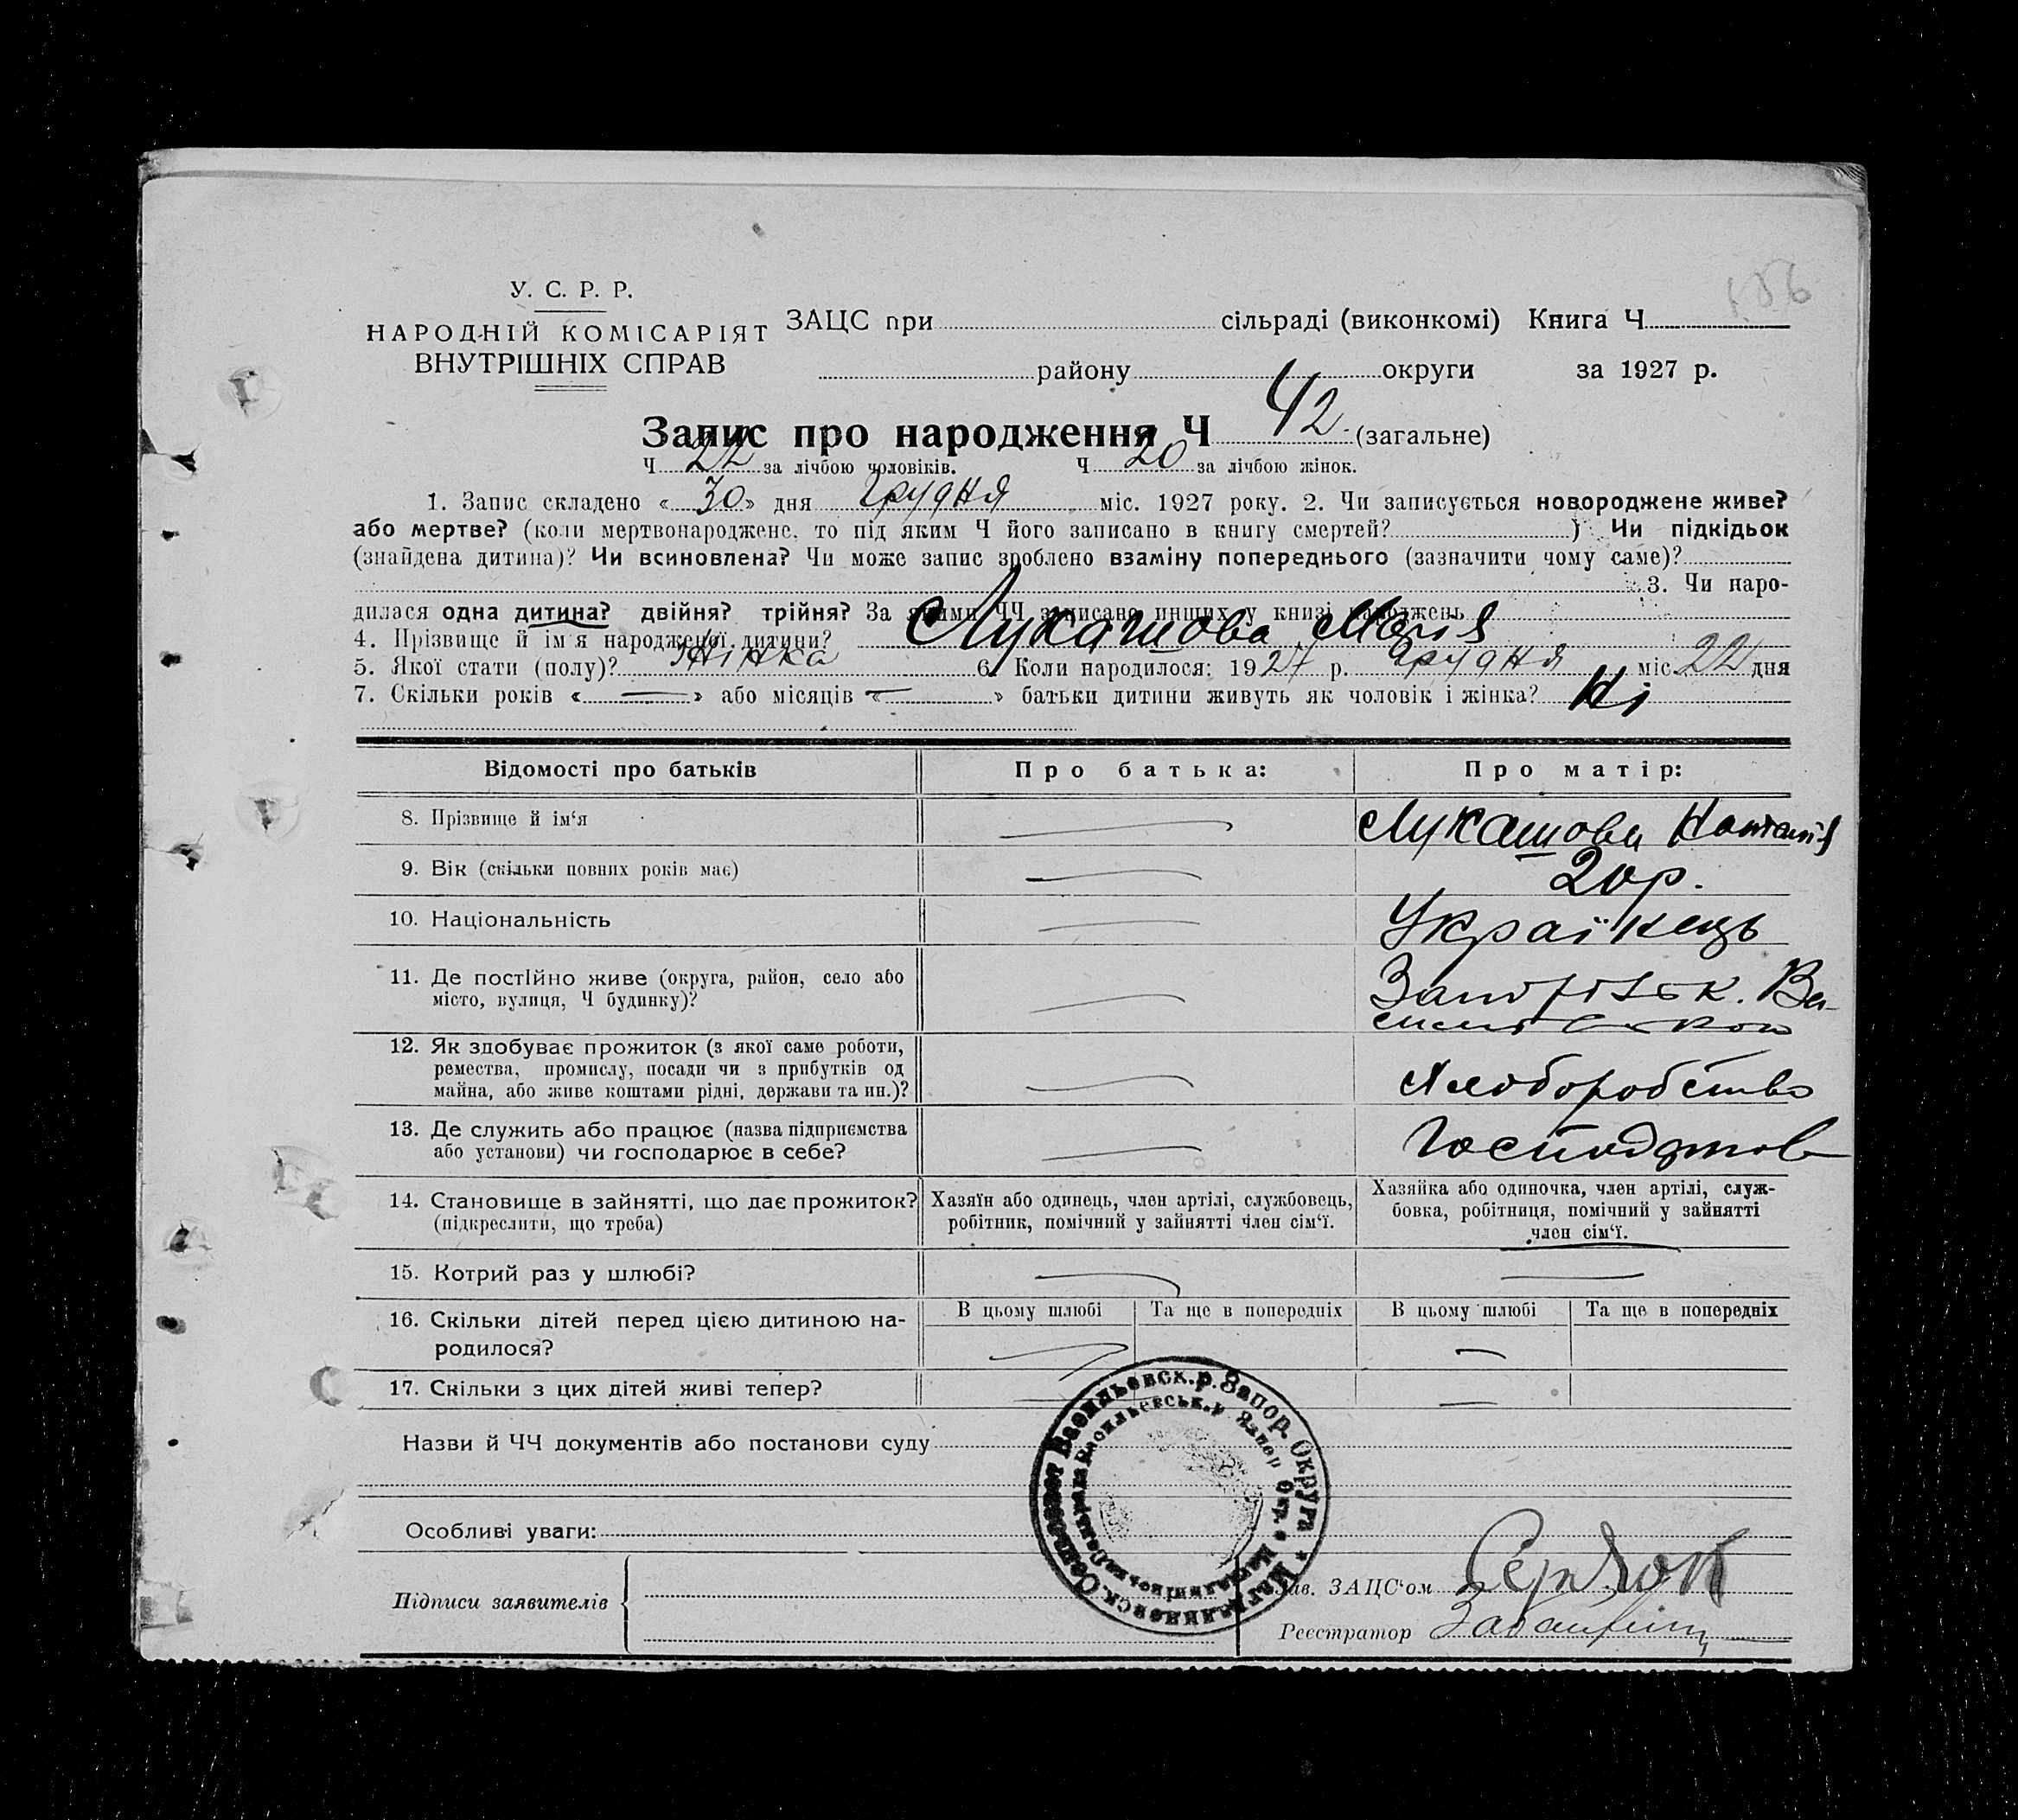 186
У. С. Р. Р.
НАРОДНІЙ КОМІСАРІЯТ
ВНУТРІШНІХ СПРАВ
ЗАЦС при сільраді (виконкомі) Книга Ч
району округи за 1927 р.
Запис про народження Ч 42. (загальне)
Ч 22 за лічбою чоловіків. Ч 20 за лічбою жінок.
1. Запис складено « 30 » дня Грудня міс. 1927 року. 2. Чи записується новороджене живе?
або мертве? (коли мертвонароджене, то під яким Ч його записано в книгу смертей? ) Чи підкідьок
(знайдена дитина)? Чи всиновлена? Чи може запис зроблено взаміну попереднього (зазначити чому саме)?
3. Чи наро-
дилася одна дитина? двійня? трійня? За якими ЧЧ записано инших у книзі народжень
4. Прізвище й ім'я народженої дитини? Лукашова Марія
5. Якої стати (полу)? жінка 6. Коли народилося: 1927 р. Грудня міс. 22 дня
7. Скільки років « — » або місяців « — » батьки дитини живуть як чоловік і жінка? Ні
Відомості про батьків Про батька: Про матір:
8. Прізвище й ім'я — Лукашова Наталія
9. Вік (скільки повних років має) — 20 р.
10. Національність — Українець
11. Де постійно живе (округа, район, село або — Запорізьк. Ва-
місто, вулиця, Ч будинку)?
12. Як здобуває прожиток (з якої саме роботи,
ремества, промислу, посади чи з прибутків од
майна, або живе коштами рідні, держави та ин.)? — Хлоборобство
13. Де служить або працює (назва підприємства
або установи) чи господарює в себе? —
14. Становище в зайнятті, що дає прожиток? Хазяїн або одинець, член артілі, службовець, Хазяйка або одиночка, член артілі, служ-
(підкреслити, що треба) робітник, помічний у зайнятті член сім'ї. бовка, робітниця, помічний у зайнятті
член сім'ї.
15. Котрий раз у шлюбі? — —
16. Скільки дітей перед цією дитиною на- В цьому шлюбі Та ще в попередніх В цьому шлюбі Та ще в попередніх
родилося? — —
17. Скільки з цих дітей живі тепер? — —
Назви й ЧЧ документів або постанови суду
Васильевск. р. Запор. Округа
Васильевськ. р. Запор. Окр.
Особливі уваги:
Підписи заявителів
Зав. ЗАЦС'ом
Реєстратор